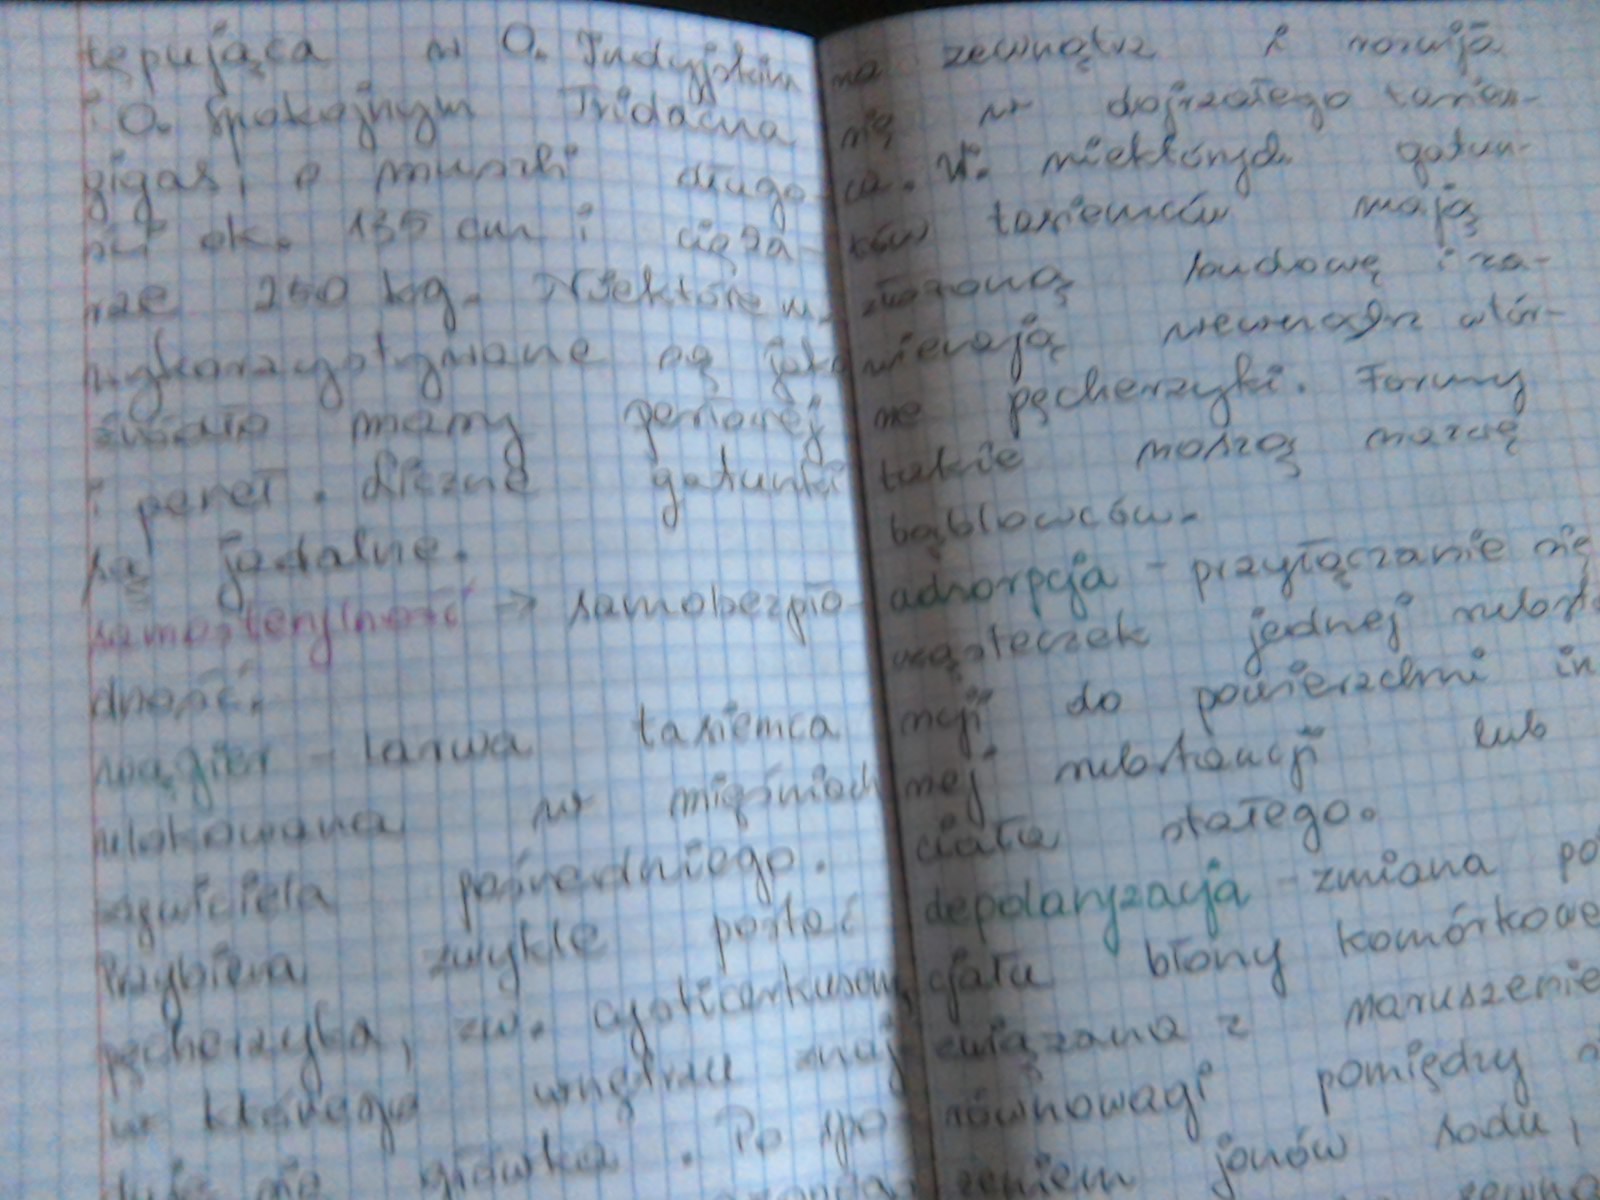 tępująca w O. Indyjskim
i O. Spokojnym Tridacna
gigas, o muszli długo-
ści ok. 135 cm i cięża-
rze 250 kg. Niektóre m.
wykorzystywane są jako
źródło masy perłowej
i pereł. Liczne gatunki
są jadalne.
samosterylność → samobezpło-
dność.
wągier - larwa tasiemca
ulokowana w mięśniach
żywiciela pośredniego.
Przybiera zwykle postać
pęcherzyka, zw. cysticerkusem,
w którego wnętrzu znaj
duje się główka. Po spo
na zewnątrz i rozwija
się w dojrzałego tasiem-
ca. W. niektórych gatun-
ków tasiemców mają
złożoną budowę i za-
wierają wewnątrz wtór-
ne pęcherzyki. Formy
takie noszą nazwę
bąblowców.
adsorpcja - przyłączanie się
cząsteczek jednej substa
ncji do powierzchni in
nej substancji lub
ciała stałego.
depolaryzacja - zmiana po
cjału błony komórkowe
związana z naruszenie
równowagi pomiędzy
jonów sodu,